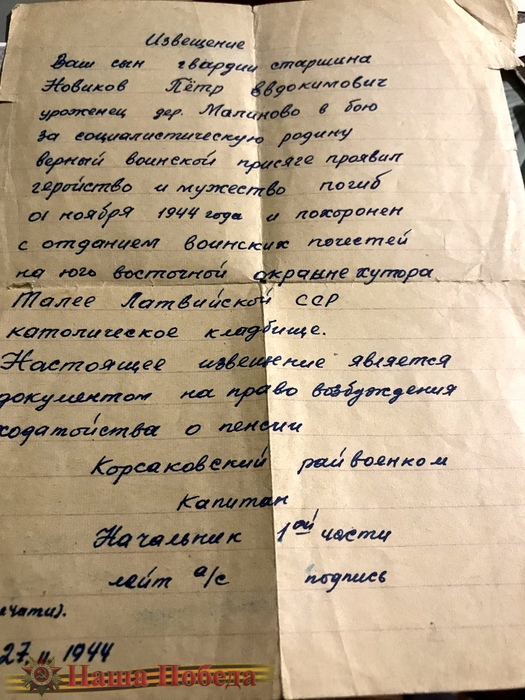 Извещение
Ваш сын гвардии старшина
Новиков Пётр Евдокимович
уроженец дер. Малиново в бою
за социалистическую родину
верный воинской присяге проявил
геройство и мужество погиб
01 ноября 1944 года и похоронен
с отданием воинских почестей
на юго восточной окраине хутора
Талее Латвийской ССР
католическое кладбище.
Настоящее извещение является
документом на право возбуждения
ходатойства о пенсии
Корсаковский райвоенком
капитан
Начальник 1ой части
лейт а/с подпись
ечати).
27. 11. 1944
Наша Победа